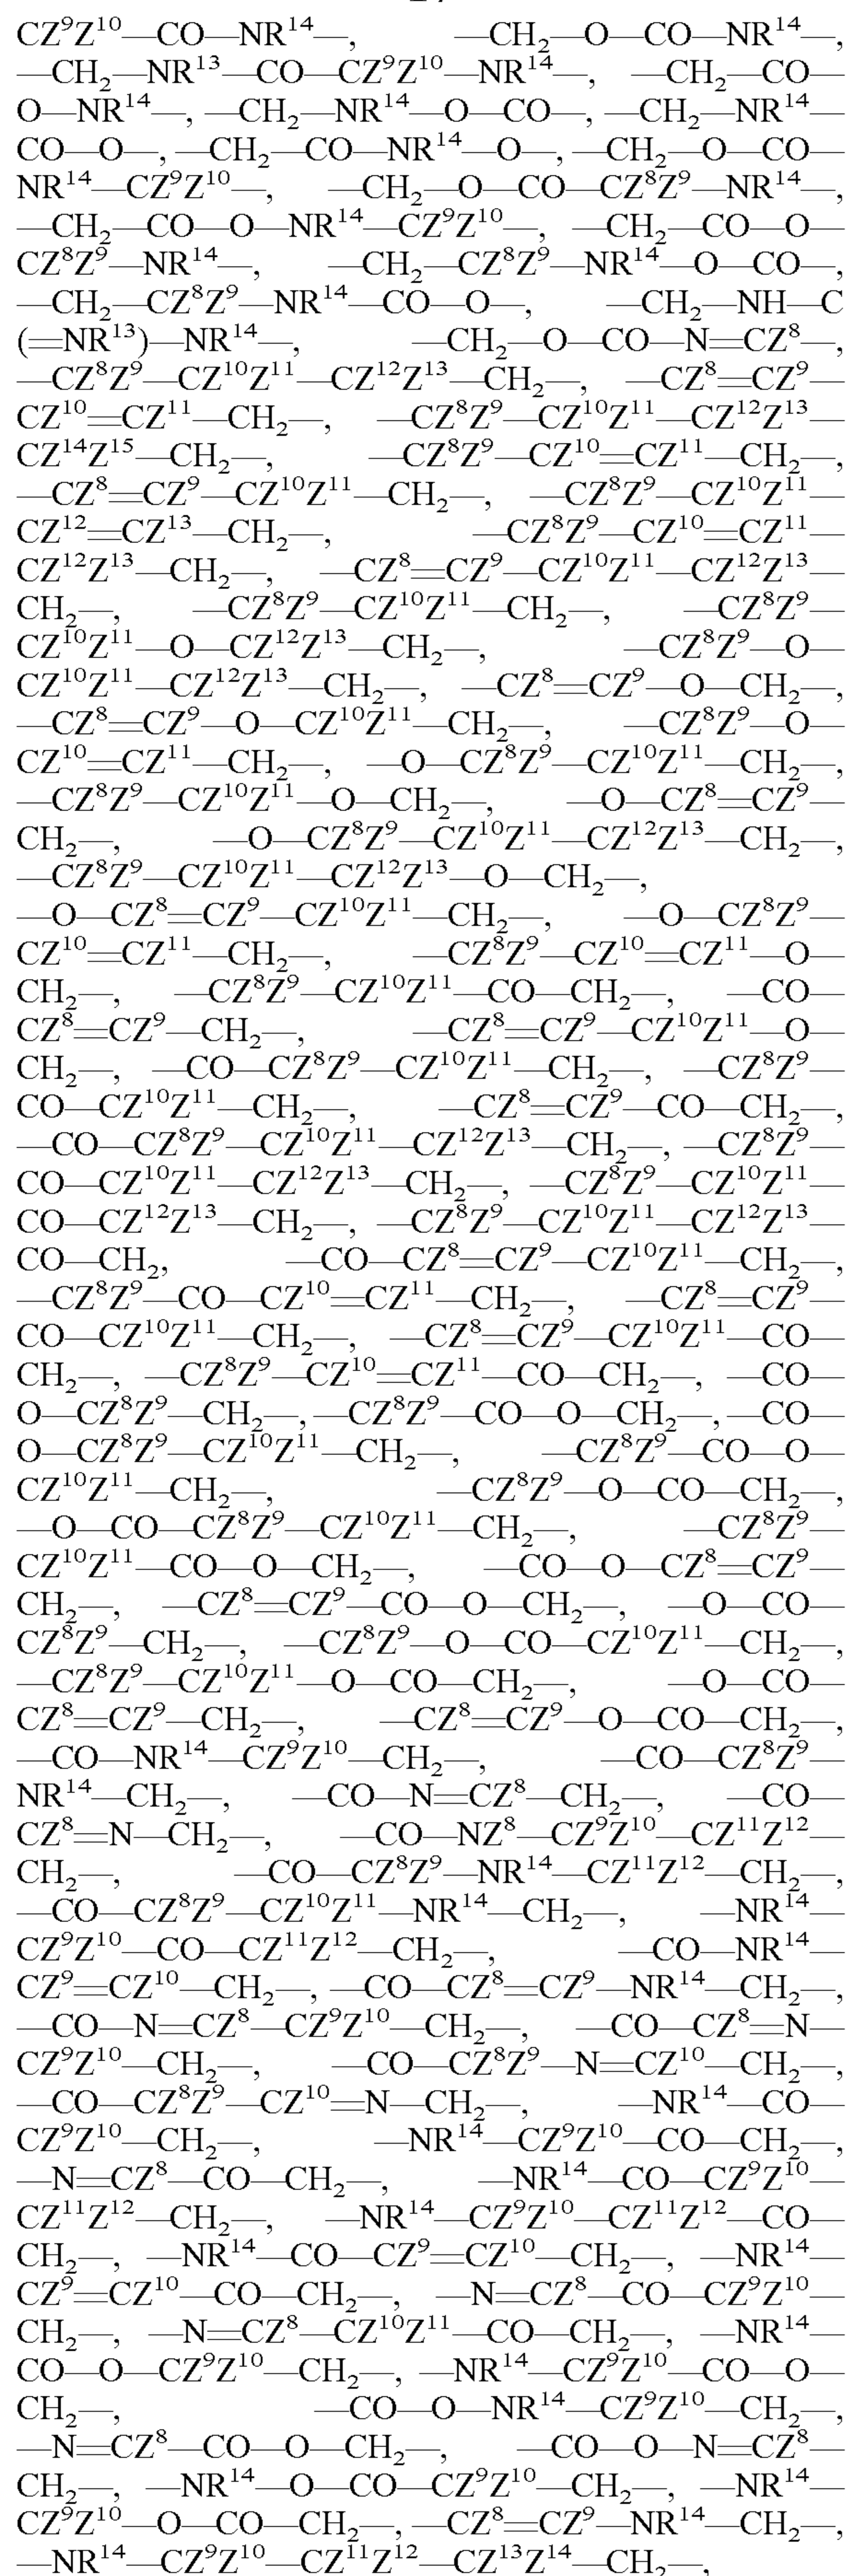 CZ⁹Z¹⁰—CO—NR¹⁴—, —CH₂—O—CO—NR¹⁴—,
—CH₂—NR¹³—CO—CZ⁹Z¹⁰—NR¹⁴—, —CH₂—CO—
O—NR¹⁴—, —CH₂—NR¹⁴—O—CO—, —CH₂—NR¹⁴—
CO—O—, —CH₂—CO—NR¹⁴—O—, —CH₂—O—CO—
NR¹⁴—CZ⁹Z¹⁰—, —CH₂—O—CO—CZ⁸Z⁹—NR¹⁴—,
—CH₂—CO—O—NR¹⁴—CZ⁹Z¹⁰—, —CH₂—CO—O—
CZ⁸Z⁹—NR¹⁴—, —CH₂—CZ⁸Z⁹—NR¹⁴—O—CO—,
—CH₂—CZ⁸Z⁹—NR¹⁴—CO—O—, —CH₂—NH—C
(=NR¹³)—NR¹⁴—, —CH₂—O—CO—N=CZ⁸—,
—CZ⁸Z⁹—CZ¹⁰Z¹¹—CZ¹²Z¹³—CH₂—, —CZ⁸=CZ⁹—
CZ¹⁰=CZ¹¹—CH₂—, —CZ⁸Z⁹—CZ¹⁰Z¹¹—CZ¹²Z¹³—
CZ¹⁴Z¹⁵—CH₂—, —CZ⁸Z⁹—CZ¹⁰=CZ¹¹—CH₂—,
—CZ⁸=CZ⁹—CZ¹⁰Z¹¹—CH₂—, —CZ⁸Z⁹—CZ¹⁰Z¹¹—
CZ¹²=CZ¹³—CH₂—, —CZ⁸Z⁹—CZ¹⁰=CZ¹¹—
CZ¹²Z¹³—CH₂—, —CZ⁸=CZ⁹—CZ¹⁰Z¹¹—CZ¹²Z¹³—
CH₂—, —CZ⁸Z⁹—CZ¹⁰Z¹¹—CH₂—, —CZ⁸Z⁹—
CZ¹⁰Z¹¹—O—CZ¹²Z¹³—CH₂—, —CZ⁸Z⁹—O—
CZ¹⁰Z¹¹—CZ¹²Z¹³—CH₂—, —CZ⁸=CZ⁹—O—CH₂—,
—CZ⁸=CZ⁹—O—CZ¹⁰Z¹¹—CH₂—, —CZ⁸Z⁹—O—
CZ¹⁰=CZ¹¹—CH₂—, —O—CZ⁸Z⁹—CZ¹⁰Z¹¹—CH₂—,
—CZ⁸Z⁹—CZ¹⁰Z¹¹—O—CH₂—, —O—CZ⁸=CZ⁹—
CH₂—, —O—CZ⁸Z⁹—CZ¹⁰Z¹¹—CZ¹²Z¹³—CH₂—,
—CZ⁸Z⁹—CZ¹⁰Z¹¹—CZ¹²Z¹³—O—CH₂—,
—O—CZ⁸=CZ⁹—CZ¹⁰Z¹¹—CH₂—, —O—CZ⁸Z⁹—
CZ¹⁰=CZ¹¹—CH₂—, —CZ⁸Z⁹—CZ¹⁰=CZ¹¹—O—
CH₂—, —CZ⁸Z⁹—CZ¹⁰Z¹¹—CO—CH₂—, —CO—
CZ⁸=CZ⁹—CH₂—, —CZ⁸=CZ⁹—CZ¹⁰Z¹¹—O—
CH₂—, —CO—CZ⁸Z⁹—CZ¹⁰Z¹¹—CH₂—, —CZ⁸Z⁹—
CO—CZ¹⁰Z¹¹—CH₂—, —CZ⁸=CZ⁹—CO—CH₂—,
—CO—CZ⁸Z⁹—CZ¹⁰Z¹¹—CZ¹²Z¹³—CH₂—, —CZ⁸Z⁹—
CO—CZ¹⁰Z¹¹—CZ¹²Z¹³—CH₂—, —CZ⁸Z⁹—CZ¹⁰Z¹¹—
CO—CZ¹²Z¹³—CH₂—, —CZ⁸Z⁹—CZ¹⁰Z¹¹—CZ¹²Z¹³—
CO—CH₂, —CO—CZ⁸=CZ⁹—CZ¹⁰Z¹¹—CH₂—,
—CZ⁸Z⁹—CO—CZ¹⁰=CZ¹¹—CH₂—, —CZ⁸=CZ⁹—
CO—CZ¹⁰Z¹¹—CH₂—, —CZ⁸=CZ⁹—CZ¹⁰Z¹¹—CO—
CH₂—, —CZ⁸Z⁹—CZ¹⁰=CZ¹¹—CO—CH₂—, —CO—
O—CZ⁸Z⁹—CH₂—, —CZ⁸Z⁹—CO—O—CH₂—, —CO—
O—CZ⁸Z⁹—CZ¹⁰Z¹¹—CH₂—, —CZ⁸Z⁹—CO—O—
CZ¹⁰Z¹¹—CH₂—, —CZ⁸Z⁹—O—CO—CH₂—,
—O—CO—CZ⁸Z⁹—CZ¹⁰Z¹¹—CH₂—, —CZ⁸Z⁹—
CZ¹⁰Z¹¹—CO—O—CH₂—, —CO—O—CZ⁸=CZ⁹—
CH₂—, —CZ⁸=CZ⁹—CO—O—CH₂—, —O—CO—
CZ⁸Z⁹—CH₂—, —CZ⁸Z⁹—O—CO—CZ¹⁰Z¹¹—CH₂—,
—CZ⁸Z⁹—CZ¹⁰Z¹¹—O—CO—CH₂—, —O—CO—
CZ⁸=CZ⁹—CH₂—, —CZ⁸=CZ⁹—O—CO—CH₂—,
—CO—NR¹⁴—CZ⁹Z¹⁰—CH₂—, —CO—CZ⁸Z⁹—
NR¹⁴—CH₂—, —CO—N=CZ⁸—CH₂—, —CO—
CZ⁸=N—CH₂—, —CO—NZ⁸—CZ⁹Z¹⁰—CZ¹¹Z¹²—
CH₂—, —CO—CZ⁸Z⁹—NR¹⁴—CZ¹¹Z¹²—CH₂—,
—CO—CZ⁸Z⁹—CZ¹⁰Z¹¹—NR¹⁴—CH₂—, —NR¹⁴—
CZ⁹Z¹⁰—CO—CZ¹¹Z¹²—CH₂—, —CO—NR¹⁴—
CZ⁹=CZ¹⁰—CH₂—, —CO—CZ⁸=CZ⁹—NR¹⁴—CH₂—,
—CO—N=CZ⁸—CZ⁹Z¹⁰—CH₂—, —CO—CZ⁸=N—
CZ⁹Z¹⁰—CH₂—, —CO—CZ⁸Z⁹—N=CZ¹⁰—CH₂—,
—CO—CZ⁸Z⁹—CZ¹⁰=N—CH₂—, —NR¹⁴—CO—
CZ⁹Z¹⁰—CH₂—, —NR¹⁴—CZ⁹Z¹⁰—CO—CH₂—,
—N=CZ⁸—CO—CH₂—, —NR¹⁴—CO—CZ⁹Z¹⁰—
CZ¹¹Z¹²—CH₂—, —NR¹⁴—CZ⁹Z¹⁰—CZ¹¹Z¹²—CO—
CH₂—, —NR¹⁴—CO—CZ⁹=CZ¹⁰—CH₂—, —NR¹⁴—
CZ⁹=CZ¹⁰—CO—CH₂—, —N=CZ⁸—CO—CZ⁹Z¹⁰—
CH₂—, —N=CZ⁸—CZ¹⁰Z¹¹—CO—CH₂—, —NR¹⁴—
CO—O—CZ⁹Z¹⁰—CH₂—, —NR¹⁴—CZ⁹Z¹⁰—CO—O—
CH₂—, —CO—O—NR¹⁴—CZ⁹Z¹⁰—CH₂—,
—N=CZ⁸—CO—O—CH₂—, —CO—O—N=CZ⁸—
CH₂—, —NR¹⁴—O—CO—CZ⁹Z¹⁰—CH₂—, —NR¹⁴—
CZ⁹Z¹⁰—O—CO—CH₂—, —CZ⁸=CZ⁹—NR¹⁴—CH₂—,
—NR¹⁴—CZ⁹Z¹⁰—CZ¹¹Z¹²—CZ¹³Z¹⁴—CH₂—,